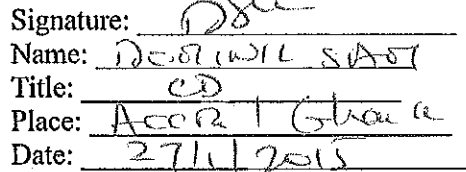 Signature:
Name:
Title: CD
Place: Accra | Ghana
Date: 27/1/2015